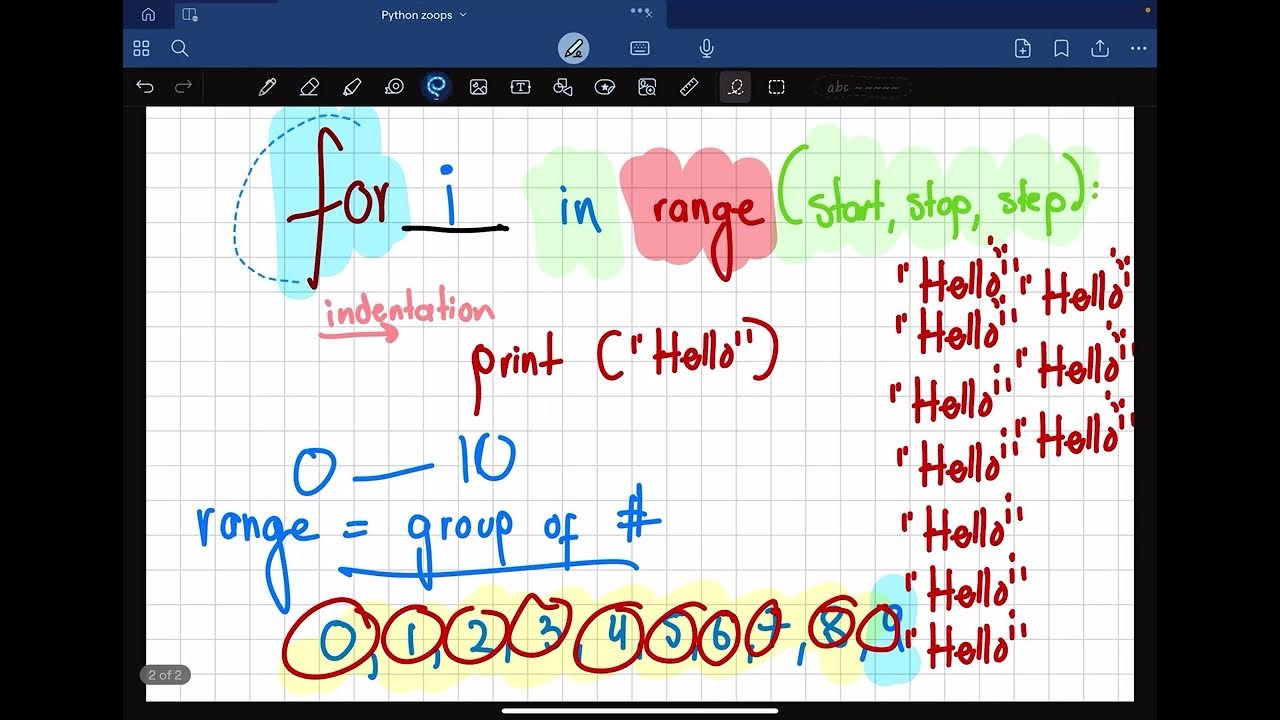 Python zoops
abc
for i in range (start, stop, step):
indentation
print ("Hello")
0 — 10
range = group of #
0, 1, 2, 3, 4, 5, 6, 7, 8, 9,
"Hello"
"Hello"
"Hello"
"Hello"
"Hello"
"Hello"
"Hello"
"Hello"
"Hello"
"Hello"
2 of 2